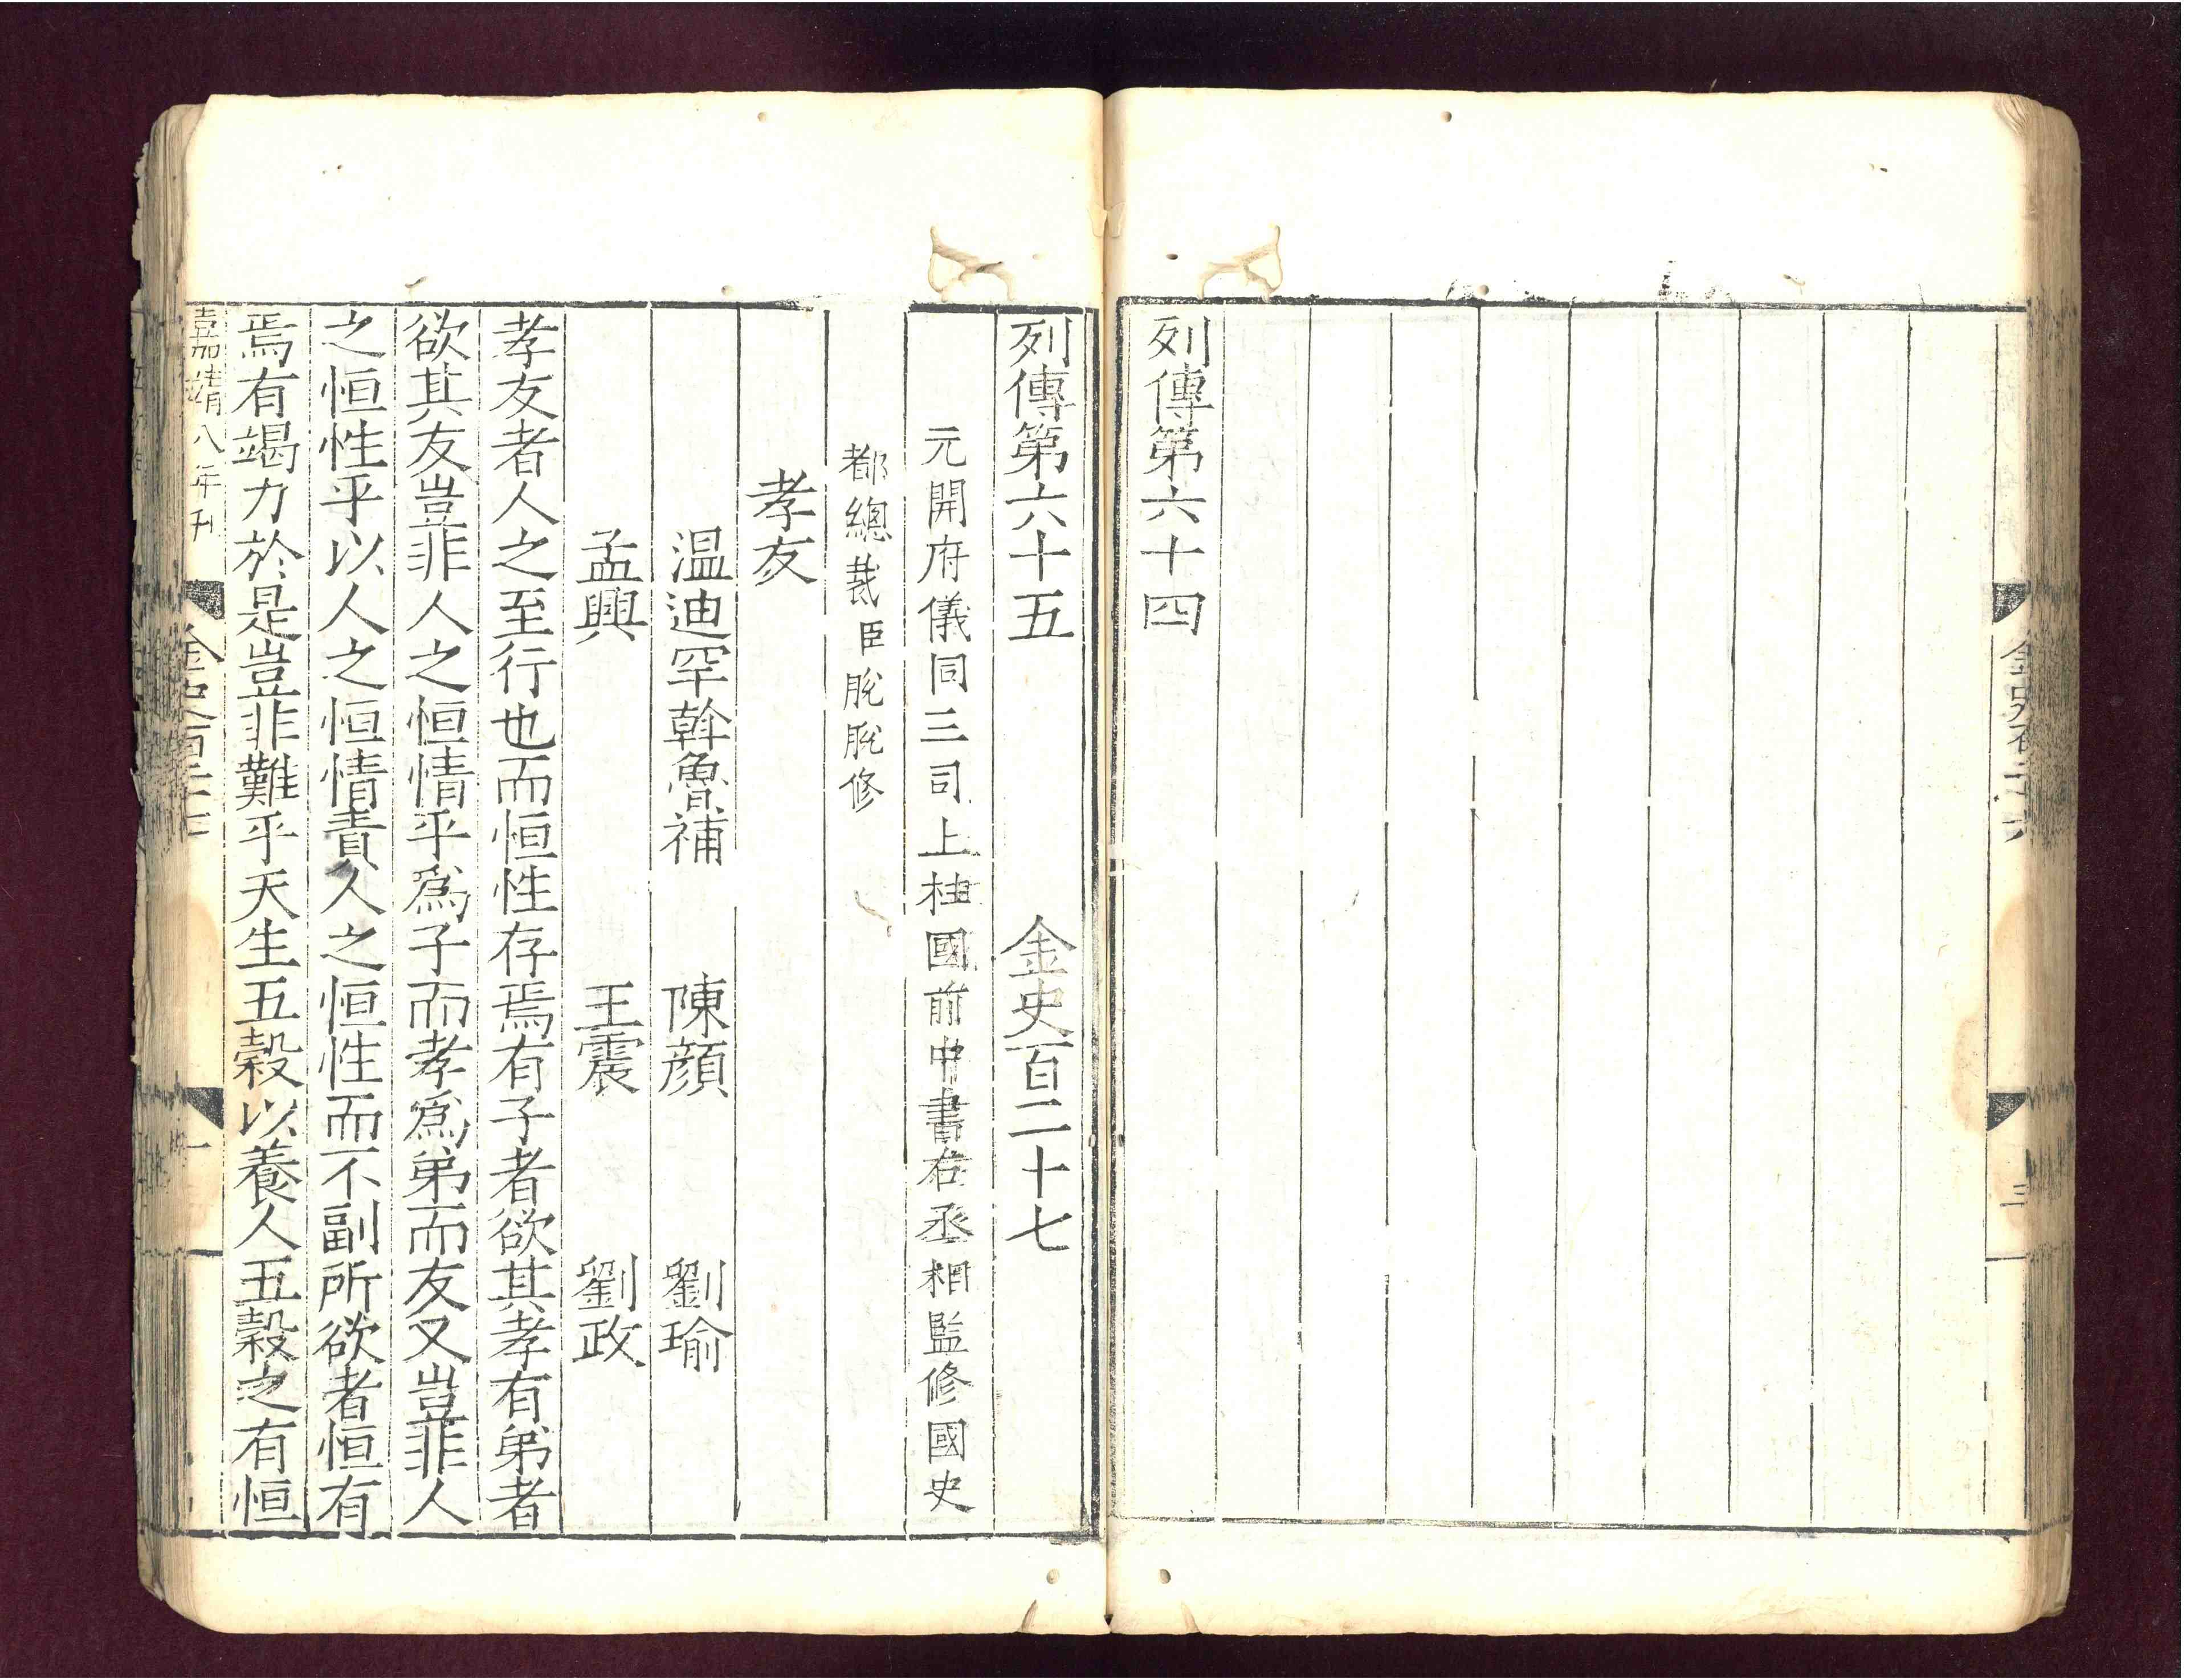 列傳第六十四
列傳第六十五 金史百二十七
元開府儀同三司上柱國前中書右丞相監修國史
都總裁臣脫脫修
孝友
温迪罕斡魯補 陳顔 劉瑜
孟興 王震 劉政
孝友者人之至行也而恒性存焉有子者欲其孝有弟者
欲其友豈非人之恒情乎爲子而孝爲弟而友又豈非人
之恒性乎以人之恒情責人之恒性而不副所欲者恒有
焉有竭力於是豈非難乎天生五穀以養人五穀之有恒
嘉靖八年刊
金史百二十七
一